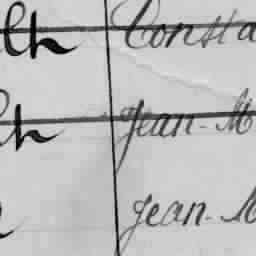 lh Consta
lh Jean-M
Jean-M